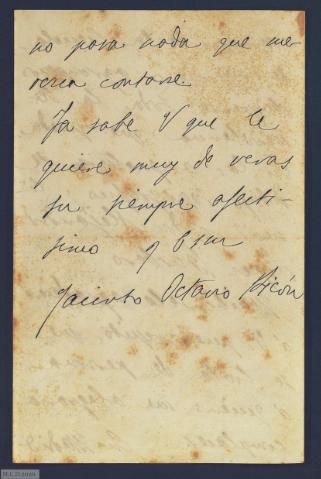 no pasa nada que me-
rezca contarse.
Ya sabe V que le
quiere muy de veras
su siempre afecti-
simo y
Jacinto Octavio Picón